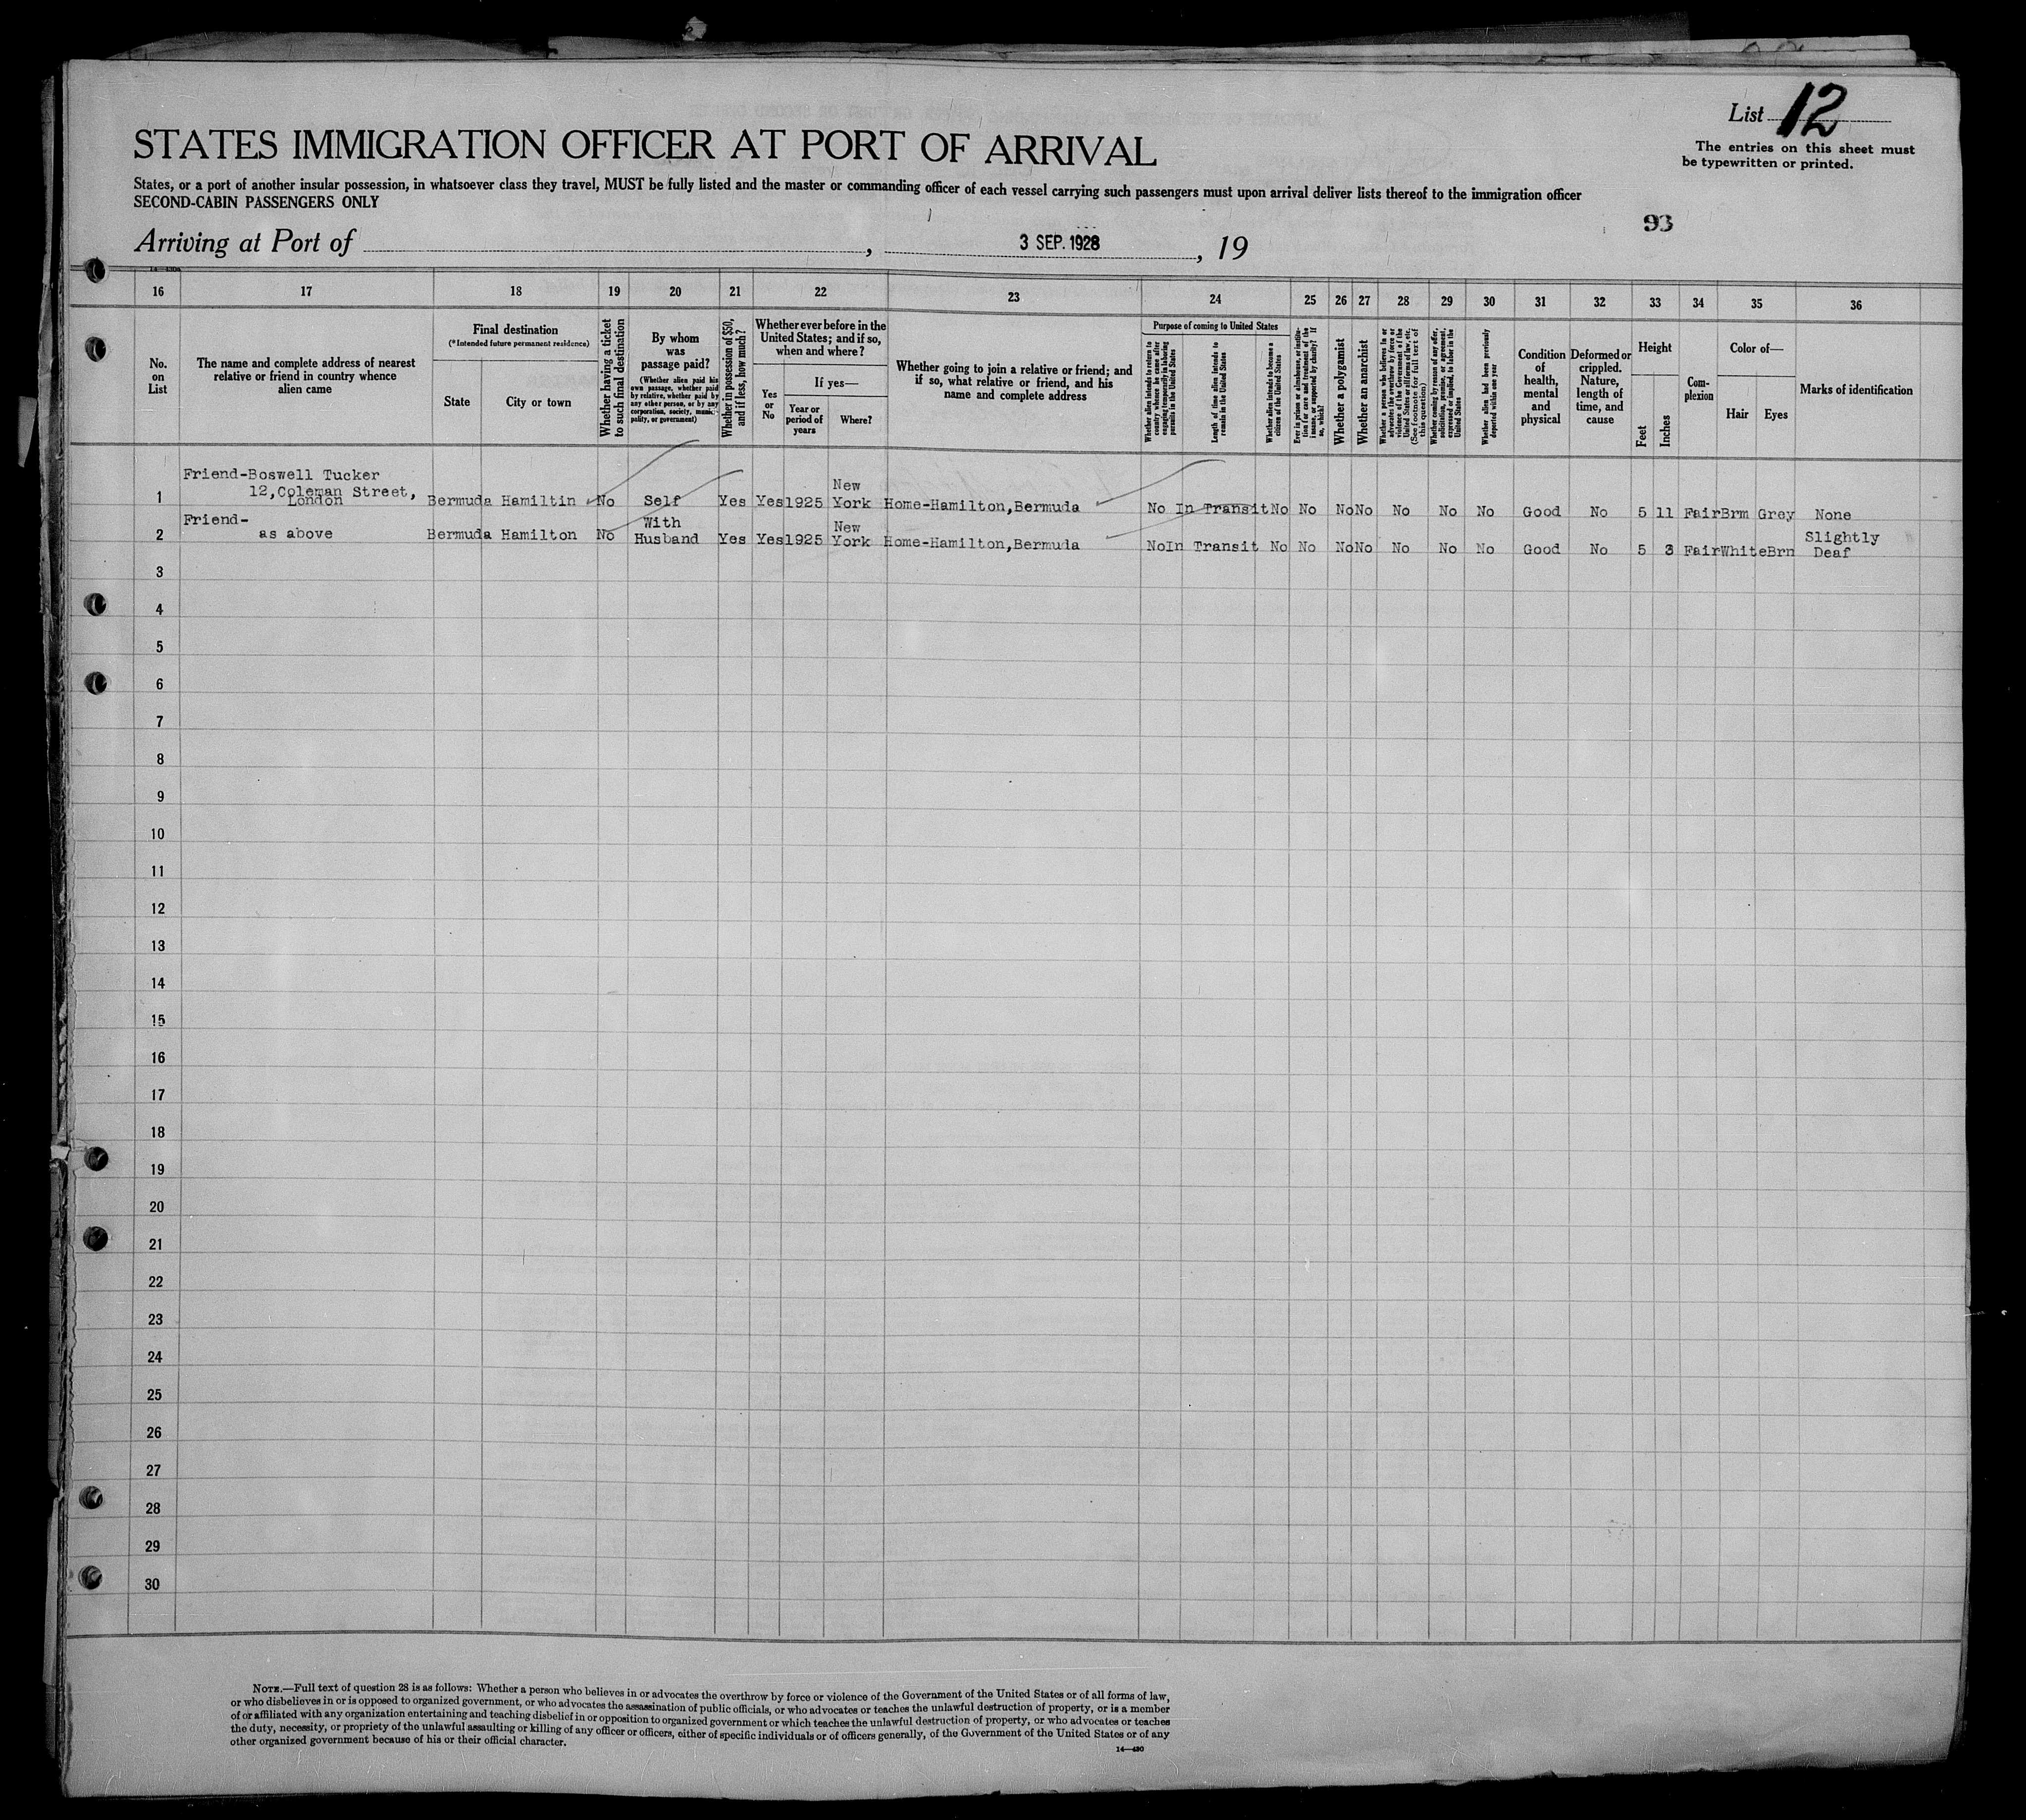 List 12
The entries on this sheet must
be typewritten or printed.
STATES IMMIGRATION OFFICER AT PORT OF ARRIVAL
States, or a port of another insular possession, in whatsoever class they travel, MUST be fully listed and the master or commanding officer of each vessel carrying such passengers must upon arrival deliver lists thereof to the immigration officer
SECOND-CABIN PASSENGERS ONLY
93
Arriving at Port of , 3 SEP. 1928, 19
16 17 18 19 20 21 22 23 24 25 26 27 28 29 30 31 32 33 34 35 36
No.
on
List
The name and complete address of nearest
relative or friend in country whence
alien came
Final destination
(*Intended future permanent residence)
State
City or town
Whether having a ticket
to such final destination
By whom
was
passage paid?
(Whether alien paid his
own passage, whether paid
by relative, whether paid by
any other person, or by any
corporation, society, munici-
pality, or government)
Whether in possession of $50,
and if less, how much?
Whether ever before in the
United States; and if so,
when and where?
Yes
or
No
If yes—
Year or
period of
years
Where?
Whether going to join a relative or friend; and
if so, what relative or friend, and his
name and complete address
Purpose of coming to United States
Whether alien intends to return to
country whence he came after
engaging temporarily in laboring
pursuits in the United States
Length of time alien intends to
remain in the United States
Whether alien intends to become a
citizen of the United States
Ever in prison or almshouse, or institu-
tion for care and treatment of the
insane, or supported by charity? If
so, which?
Whether a polygamist
Whether an anarchist
Whether a person who believes in or
advocates the overthrow by force or
violence of the Government of the
United States or all forms of law, etc.
(See footnote for full text of
this question)
Whether coming by reason of any offer,
solicitation, promise, or agreement,
expressed or implied, to labor in the
United States
Whether alien had been previously
deported within one year
Condition
of
health,
mental
and
physical
Deformed or
crippled.
Nature,
length of
time, and
cause
Height
Feet
Inches
Com-
plexion
Color of—
Hair
Eyes
Marks of identification
Friend-Boswell Tucker
12,Coleman Street,
London
New
1 Bermuda Hamiltin No Self Yes Yes 1925 York Home-Hamilton,Bermuda No In Transit No No No No No No No Good No 5 11 Fair Brm Grey None
Friend-
as above
With
New
Slightly
2 Bermuda Hamilton No Husband Yes Yes 1925 York Home-Hamilton,Bermuda No In Transit No No No No No No No Good No 5 3 Fair White Brn Deaf
3
4
5
6
7
8
9
10
11
12
13
14
15
16
17
18
19
20
21
22
23
24
25
26
27
28
29
30
NOTE.—Full text of question 28 is as follows: Whether a person who believes in or advocates the overthrow by force or violence of the Government of the United States or of all forms of law,
or who disbelieves in or is opposed to organized government, or who advocates the assassination of public officials, or who advocates or teaches the unlawful destruction of property, or is a member
of or affiliated with any organization entertaining and teaching disbelief in or opposition to organized government or which teaches the unlawful destruction of property, or who advocates or teaches
the duty, necessity, or propriety of the unlawful assaulting or killing of any officer or officers, either of specific individuals or of officers generally, of the Government of the United States or of any
other organized government because of his or their official character.
14—430